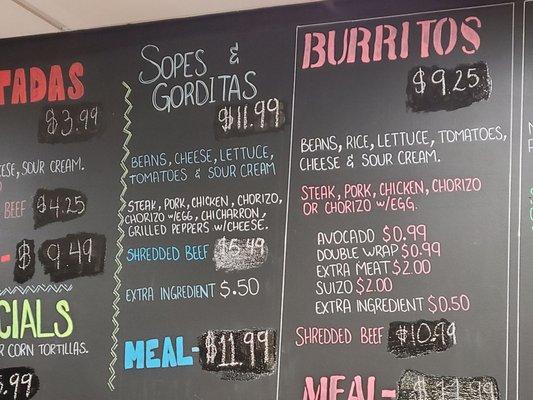 TADAS
$3.99
ESE, SOUR CREAM.
BEEF $4.25
- $9.49
CIALS
R CORN TORTILLAS.
5.99
SOPES &
GORDITAS
$11.99
BEANS, CHEESE, LETTUCE,
TOMATOES & SOUR CREAM
STEAK, PORK, CHICKEN, CHORIZO,
CHORIZO W/EGG, CHICHARRON,
GRILLED PEPPERS W/CHEESE.
SHREDDED BEEF
EXTRA INGREDIENT $.50
MEAL-$11.99
BURRITOS
$9.25
BEANS, RICE, LETTUCE, TOMATOES,
CHEESE & SOUR CREAM.
STEAK, PORK, CHICKEN, CHORIZO
OR CHORIZO W/EGG.
AVOCADO $0.99
DOUBLE WRAP $0.99
EXTRA MEAT $2.00
SUIZO $2.00
EXTRA INGREDIENT $0.50
SHREDDED BEEF $10.99
MEAL-